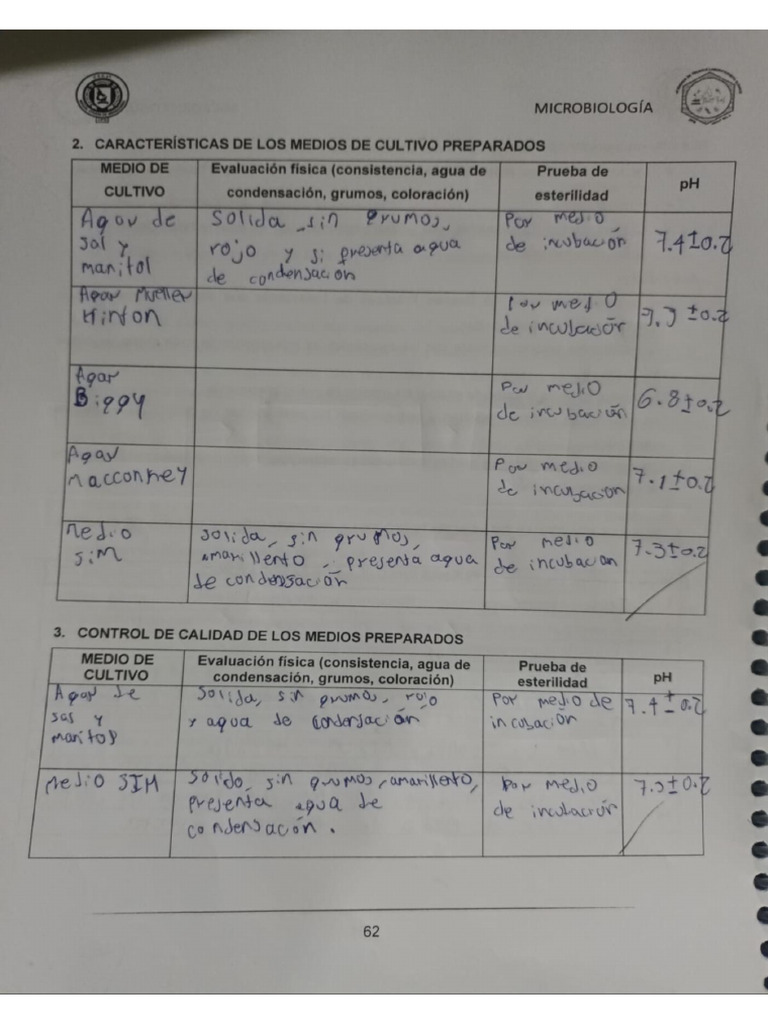 MICROBIOLOGÍA
2. CARACTERÍSTICAS DE LOS MEDIOS DE CULTIVO PREPARADOS
MEDIO DE CULTIVO
Evaluación física (consistencia, agua de condensación, grumos, coloración)
Prueba de esterilidad
pH
Agar de
sal y
manitol
Solida, sin grumos,
rojo y si presenta agua
de condensación
Por medio
de incubación
7.4±0.2
Agar Mueller
Hinton
Por medio
de incubación
7.3±0.2
Agar
Biggy
Por medio
de incubación
6.8±0.2
Agar
Macconkey
Por medio
de incubacion
7.1±0.2
Medio
SIM
Solida, sin grumos,
amarillento, presenta agua
de condensación
Por medio
de incubacion
7.3±0.2
3. CONTROL DE CALIDAD DE LOS MEDIOS PREPARADOS
MEDIO DE CULTIVO
Evaluación física (consistencia, agua de condensación, grumos, coloración)
Prueba de esterilidad
pH
Agar de
sal y
manitol
Solida, sin grumos, rojo
y agua de condensación
Por medio de
incubación
7.4±0.2
Medio SIM
Solido, sin grumos, amarillento,
presenta agua de
condensación.
Por medio
de incubación
7.3±0.2
62